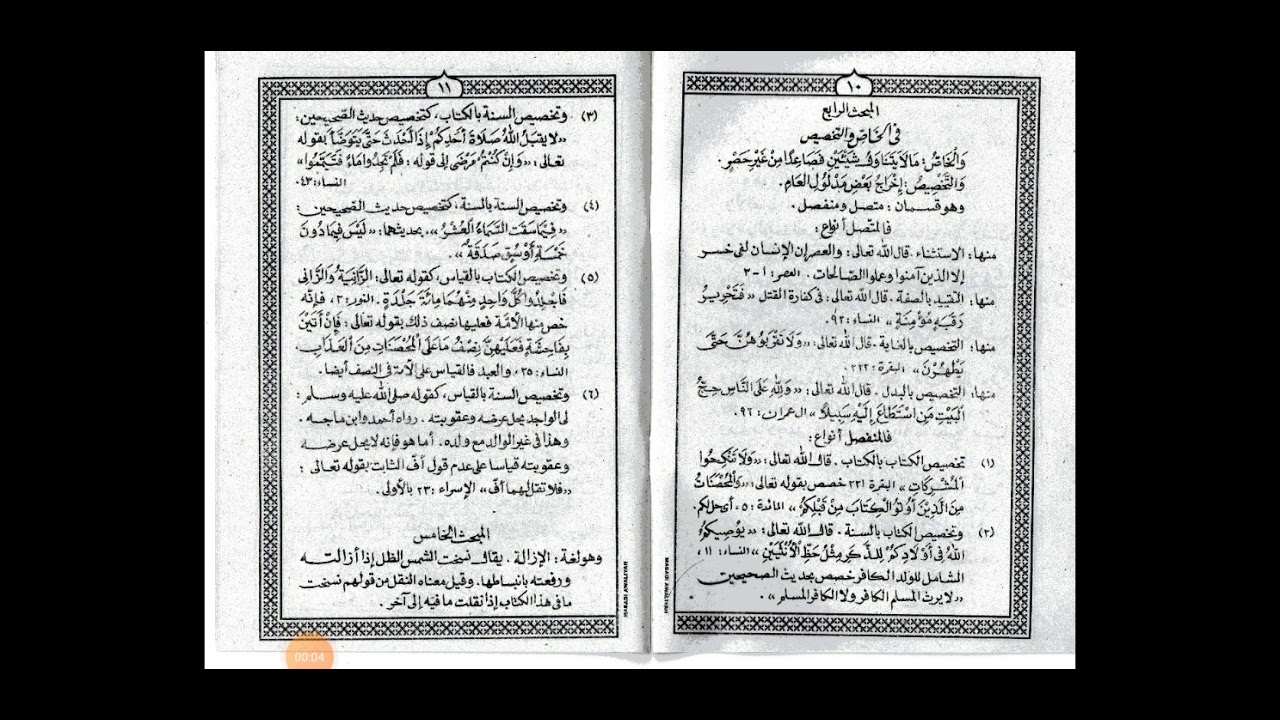 ١٠
المبحث الرابع
في الخاص والتخصيص
وَالْخَاصُّ: مَا لَا يَتَنَاوَلُ شَيْئَيْنِ فَصَاعِدًا مِنْ غَيْرِ حَصْرٍ.
وَالتَّخْصِيصُ: إِخْرَاجُ بَعْضِ مَدْلُولِ الْعَامِ.
وهو قسمان: متصل ومنفصل.
فالمتّصل أنواع:
منها: الاستثناء. قال الله تعالى: والعصر إن الإنسان لفى خسر
إلا الذين آمنوا وعملوا الصالحات. العصر: ١-٣
منها: التقييد بالصفة. قال الله تعالى: فى كفارة القتل «فَتَحْرِيرُ
رَقَبَةٍ مُؤْمِنَةٍ» النساء: ٩٢.
منها: التخصيص بالغاية. قال الله تعالى: «وَلَا تَقْرَبُوْهُنَّ حَتَّى
يَطْهُرْنَ» البقرة: ٢٢٢.
منها: التخصيص بالبدل. قال الله تعالى: «وَلِلَّهِ عَلَى النَّاسِ حِجُّ
الْبَيْتِ مَنِ اسْتَطَاعَ إِلَيْهِ سَبِيلًا» ال عمران: ٩٦.
فالمنفصل أنواع:
(١) تخصيص الكتاب بالكتاب. قال الله تعالى: «وَلَا تَنْكِحُوا
الْمُشْرِكَاتِ» البقرة ٢٢١ خصص بقوله تعالى: «وَالْمُحْصَنَاتُ
مِنَ الَّذِيْنَ أُوْتُوا الْكِتَابَ مِنْ قَبْلِكُمْ» المائدة: ٥، أى حل لكم.
(٢) وتخصيص الكتاب بالسنة. قال الله تعالى: «يُوْصِيكُمُ
اللهُ فِى أَوْلَادِكُمْ لِلذَّكَرِ مِثْلُ حَظِّ الْأُنْثَيَيْنِ» النساء: ١١،
الشامل للولد الكافر خصص بحديث الصحيحين
«لا يرث المسلم الكافر ولا الكافر المسلم».
MABADI AWALIYAH
١١
(٣) وتخصيص السنة بالكتاب، كتخصيص حديث الصحيحين:
«لا يقبَلُ اللهُ صَلَاةَ أَحَدِكُمْ إِذَا أَحْدَثَ حَتَّى يَتَوَضَّأَ» بقوله
تعالى: «وَإِنْ كُنْتُمْ مَرْضَى إلى قوله: فَلَمْ تَجِدُوا مَاءً فَتَيَمَّمُوا»
النساء: ٤٣.
(٤) وتخصيص السنة بالسنة، كتخصيص حديث الصحيحين:
«فِيْمَا سَقَتِ السَّمَاءُ الْعُشْرُ»، بحديثهما: «لَيْسَ فِيمَا دُونَ
خَمْسَةِ أَوْسُقٍ صَدَقَةٌ».
(٥) وتخصيص الكتاب بالقياس، كقوله تعالى: الزَّانِيَةُ وَالزَّانِى
فَاجْلِدُوا كُلَّ وَاحِدٍ مِنْهُمَا مِائَةَ جَلْدَةٍ. النور: ٢، فإنّه
خص منها الأمة فعليها نصف ذلك بقوله تعالى: فَإِنْ أَتَيْنَ
بِفَاحِشَةٍ فَعَلَيْهِنَّ نِصْفُ مَا عَلَى الْمُحْصَنَاتِ مِنَ الْعَذَابِ.
النساء: ٢٥، والعبد فالقياس على الأمة فى النصف أيضا.
(٦) وتخصيص السنة بالقياس، كقوله صلى الله عليه وسلم:
لى الواجد يحل عرضه وعقوبته. رواه أحمد وابن ماجه.
وهذا فى غير الوالد مع ولده. أما هو فإنه لا يحل عرضه
وعقوبته قياسا على عدم قول أف الثابت بقوله تعالى:
«فلا تقل لهما أف» الإسراء: ٢٣ بالأولى.
المبحث الخامس
وهو لغة: الإزالة. يقال نسخت الشمس الظل إذا أزالته
ورفعته بانبساطها. وقيل معناه النقل من قولهم نسخت
ما فى هذا الكتاب إذا نقلت ما فيه إلى آخر.
MABADI AWALIYAH
00:04